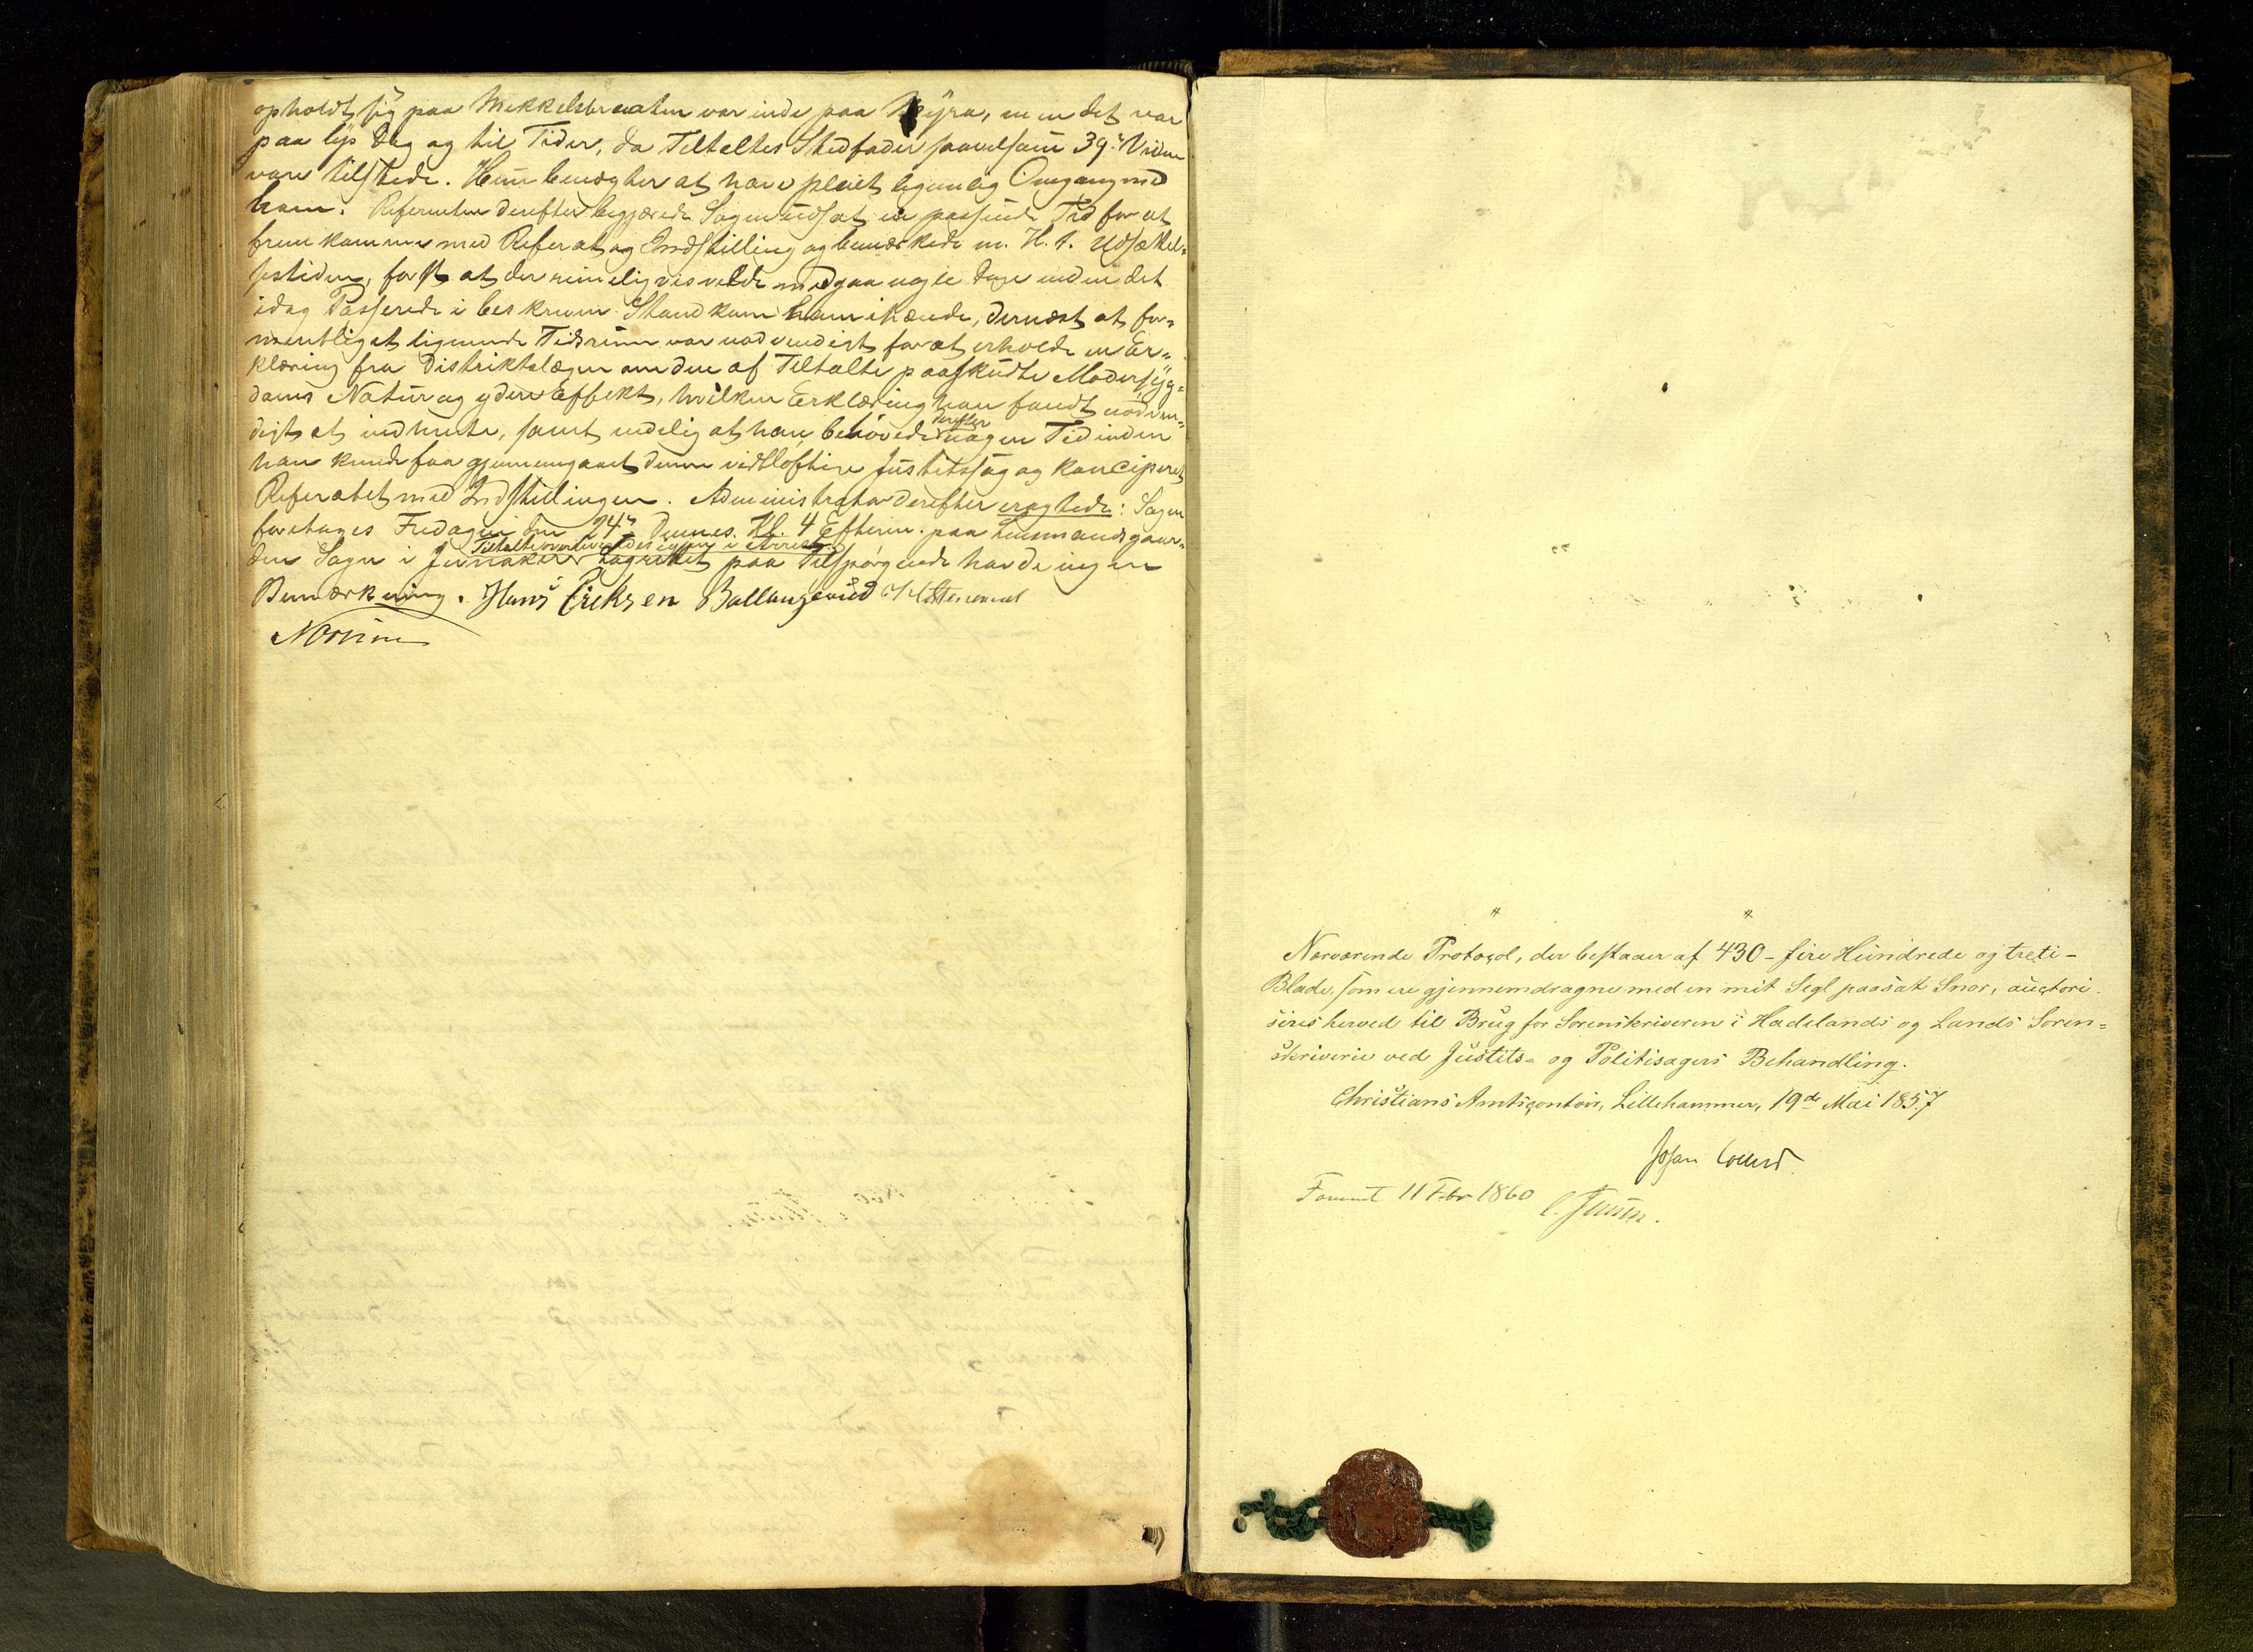 opholdt sig paa Mikkelsbraaten var inde paa Myra, men det var
paa lys Dag og til Tider, da Tiltaltes Stedfader saavelsom 39. Vidne
vare tilstede. Hun benegter at have pleiet legemlig Omgang med
ham. Referenten derefter begjærede Sagen udsat en passende Tid for at
fremkomme med Referat og Indstilling og bemærkede m. H. t. Udsættel-
sestiden, først at der rimeligvis vilde medgaa nogle Dage inden det
idag Passerede i beskreven Stand kom ham ihænde, dernæst at for-
mentligt et lignende Tidsrum var nødvendigt for at erholde en Er-
klæring fra Distriktslægen om den af Tiltalte paaskudte Modersyg-
doms Natur og ydre Effekt, hvilken Erklæring han fandt nødven-
digt at indhente, samt endelig at han behøvede derefter nogen Tid inden
han kunde faa gjennemgaaet denne vidtløftige Justitssag og konciperet
Referatet med Indstillingen. Administrator derefter eragtede: Sagen
foretages Fredagen den 24de Dennes Kl. 4 Efterm. paa Lensmandsgaar-
Tiltalte overleveredes igjen i Arrest.
den Sogn i Jevnaker. Lagrettet paa Tilspørgende havde ingen
Bemærkning. Hans Eriksen Ballangrud
Nærværende Protocol, der bestaaer af 430 - fire Hundrede og treti -
Blade, som ere gjennemdragne med en mit Segl paasat Snor, auctori-
seres herved til Brug for Sorenskriveren i Hadelands og Lands Soren-
skriverie ved Justits- og Politisagers Behandling.
Christians Amtscontoir, Lillehammer, 19de Mai 1857
Johan Collett
11 Febr 1860